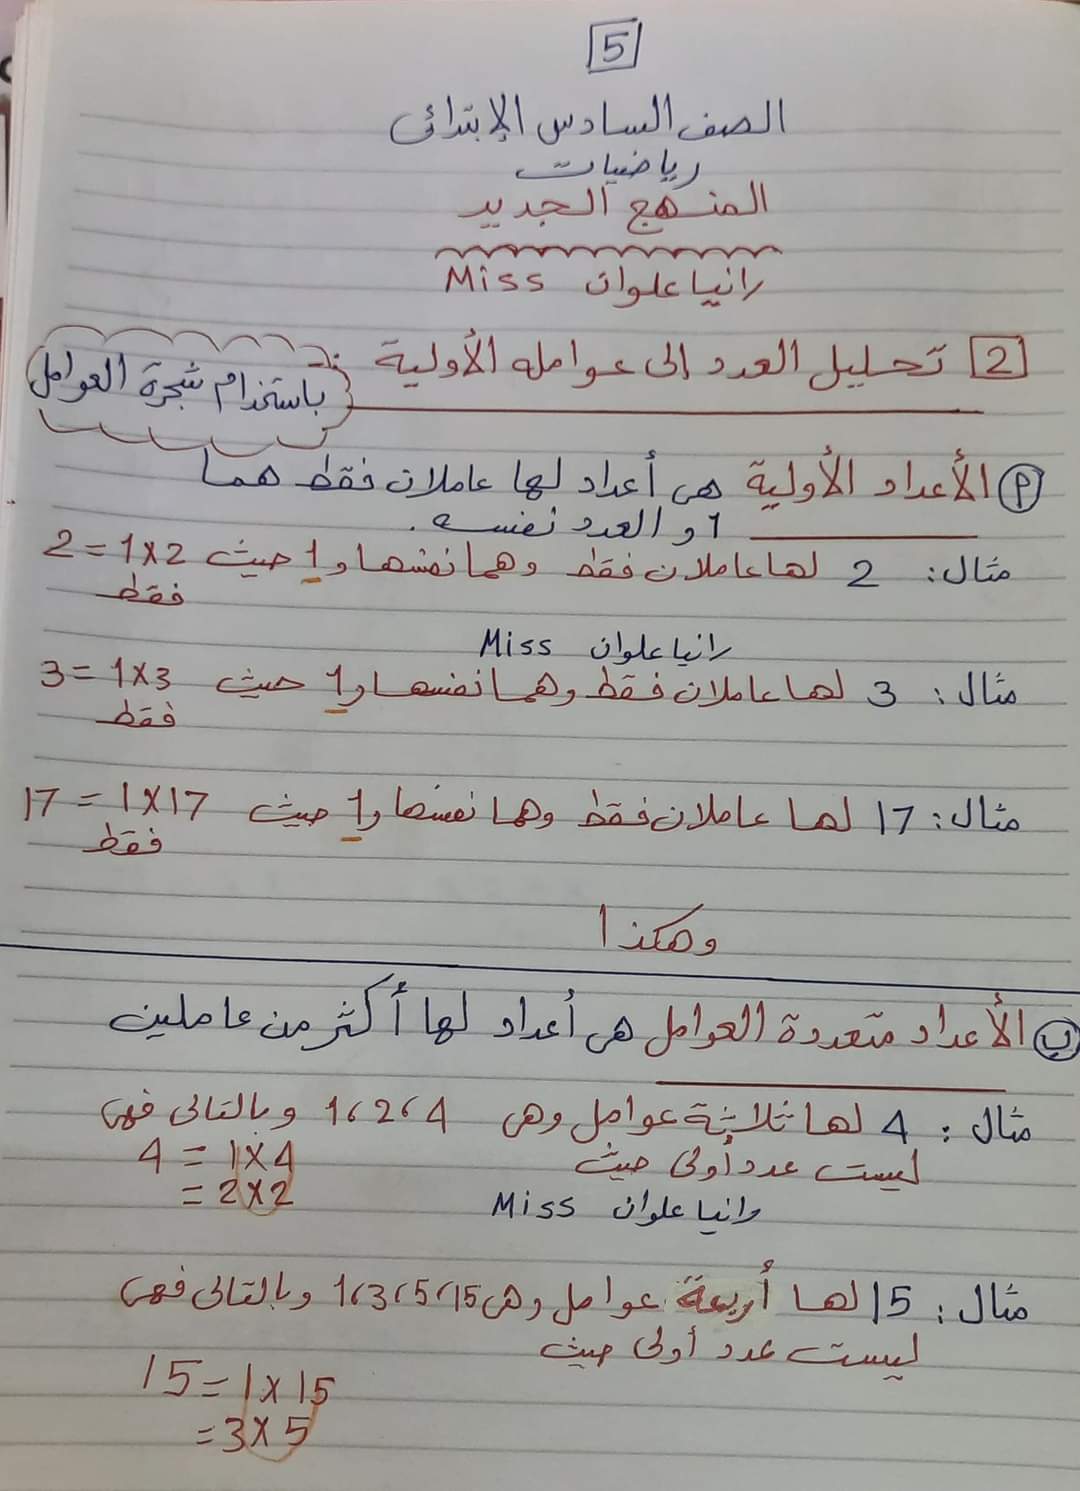 5
الصف السادس الإبتدائى
رياضيات
المنهج الجديد
Miss رانيا علوان
2 تحليل العدد إلى عوامله الأولية
باستخدام شجرة العوامل
أ الأعداد الأولية هى أعداد لها عاملان فقط هما
1 و العدد نفسه.
مثال: 2 لها عاملان فقط وهما نفسها و1 حيث 2=1×2
فقط
Miss رانيا علوان
مثال: 3 لها عاملان فقط وهما نفسها و1 حيث 3=1×3
فقط
مثال: 17 لها عاملان فقط وهما نفسها و1 حيث 17=1×17
فقط
وهكذا
ب الأعداد متعددة العوامل هى أعداد لها أكثر من عاملين
مثال: 4 لها ثلاثة عوامل وهى 1،2،4 وبالتالى فهى
ليست عدد أولى حيث 4=1×4
=2×2
Miss رانيا علوان
مثال: 15 لها أربعة عوامل وهى 1،3،5،15 وبالتالى فهى
ليست عدد أولى حيث
15=1×15
=3×5